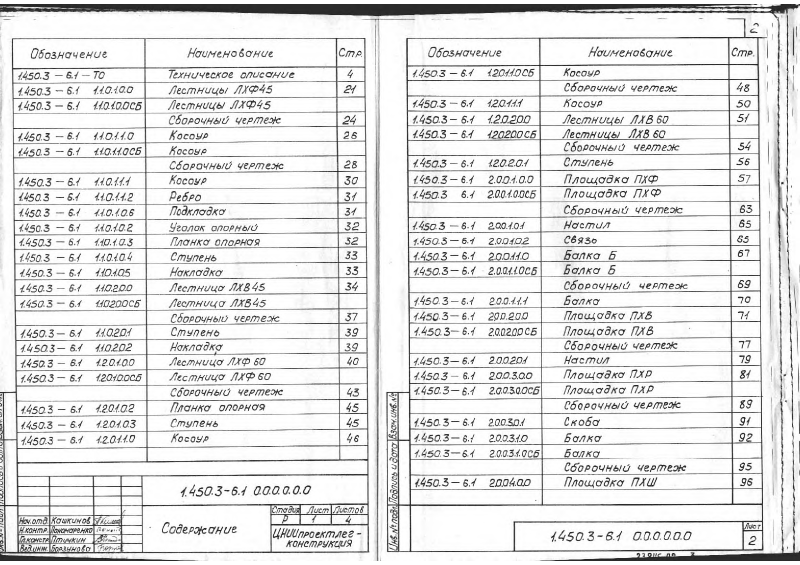 Обозначение Наименование Стр.
1.450.3 – 6.1 – ТО Техническое описание 4
1.450.3 – 6.1 1.1.0.1.0.0 Лестницы ЛХФ45 21
1.450.3 – 6.1 1.1.0.1.0.0СБ Лестницы ЛХФ45
Сборочный чертеж 24
1.450.3 – 6.1 1.1.0.1.1.0 Косоур 26
1.450.3 – 6.1 1.1.0.1.1.0СБ Косоур
Сборочный чертеж 28
1.450.3 – 6.1 1.1.0.1.1.1 Косоур 30
1.450.3 – 6.1 1.1.0.1.1.2 Ребро 31
1.450.3 – 6.1 1.1.0.1.0.6 Подкладка 31
1.450.3 – 6.1 1.1.0.1.0.2 Уголок опорный 32
1.450.3 – 6.1 1.1.0.1.0.3 Планка опорная 32
1.450.3 – 6.1 1.1.0.1.0.4 Ступень 33
1.450.3 – 6.1 1.1.0.1.0.5 Накладка 33
1.450.3 – 6.1 1.1.0.2.0.0 Лестница ЛХВ45 34
1.450.3 – 6.1 1.1.0.2.0.0СБ Лестница ЛХВ45
Сборочный чертеж 37
1.450.3 – 6.1 1.1.0.2.0.1 Ступень 39
1.450.3 – 6.1 1.1.0.2.0.2 Накладка 39
1.450.3 – 6.1 1.2.0.1.0.0 Лестница ЛХФ60 40
1.450.3 – 6.1 1.2.0.1.0.0СБ Лестница ЛХФ60
Сборочный чертеж 43
1.450.3 – 6.1 1.2.0.1.0.2 Планка опорная 45
1.450.3 – 6.1 1.2.0.1.0.3 Ступень 45
1.450.3 – 6.1 1.2.0.1.1.0 Косоур 46
1.450.3-6.1 0.0.0.0.0.0
Нач.отд. Кашкинов
Н.контр.
Гл.констр. Птичкин
Вед.инж. Борзунова
Содержание
Стадия Лист Листов
Р 1 4
ЦНИИпроектлег-
конструкция
2
Обозначение Наименование Стр.
1.450.3 – 6.1 1.2.0.1.1.0СБ Косоур
Сборочный чертеж 48
1.450.3 – 6.1 1.2.0.1.1.1 Косоур 50
1.450.3 – 6.1 1.2.0.2.0.0 Лестницы ЛХВ60 51
1.450.3 – 6.1 1.2.0.2.0.0СБ Лестницы ЛХВ60
Сборочный чертеж 54
1.450.3 – 6.1 1.2.0.2.0.1 Ступень 56
1.450.3 – 6.1 2.0.0.1.0.0 Площадка ПХФ 57
1.450.3 6.1 2.0.0.1.0.0СБ Площадка ПХФ
Сборочный чертеж 63
1.450.3 – 6.1 2.0.0.1.0.1 Настил 65
1.450.3 – 6.1 2.0.0.1.0.2 Связь 65
1.450.3 – 6.1 2.0.0.1.1.0 Балка Б 67
1.450.3 – 6.1 2.0.0.1.1.0СБ Балка Б
Сборочный чертеж 69
1.450.3 – 6.1 2.0.0.1.1.1 Балка 70
1.450.3 – 6.1 2.0.0.2.0.0 Площадка ПХВ 71
1.450.3 – 6.1 2.0.0.2.0.0СБ Площадка ПХВ
Сборочный чертеж 77
1.450.3 – 6.1 2.0.0.2.0.1 Настил 79
1.450.3 – 6.1 2.0.0.3.0.0 Площадка ПХР 81
1.450.3 – 6.1 2.0.0.3.0.0СБ Площадка ПХР
Сборочный чертеж 89
1.450.3 – 6.1 2.0.0.3.0.1 Скоба 91
1.450.3 – 6.1 2.0.0.3.1.0 Балка 92
1.450.3 – 6.1 2.0.0.3.1.0СБ Балка
Сборочный чертеж 95
1.450.3 – 6.1 2.0.0.4.0.0 Площадка ПХШ 96
Инв.№подл. Подпись и дата Взам.инв.№
1.450.3-6.1 0.0.0.0.0.0
Лист
2